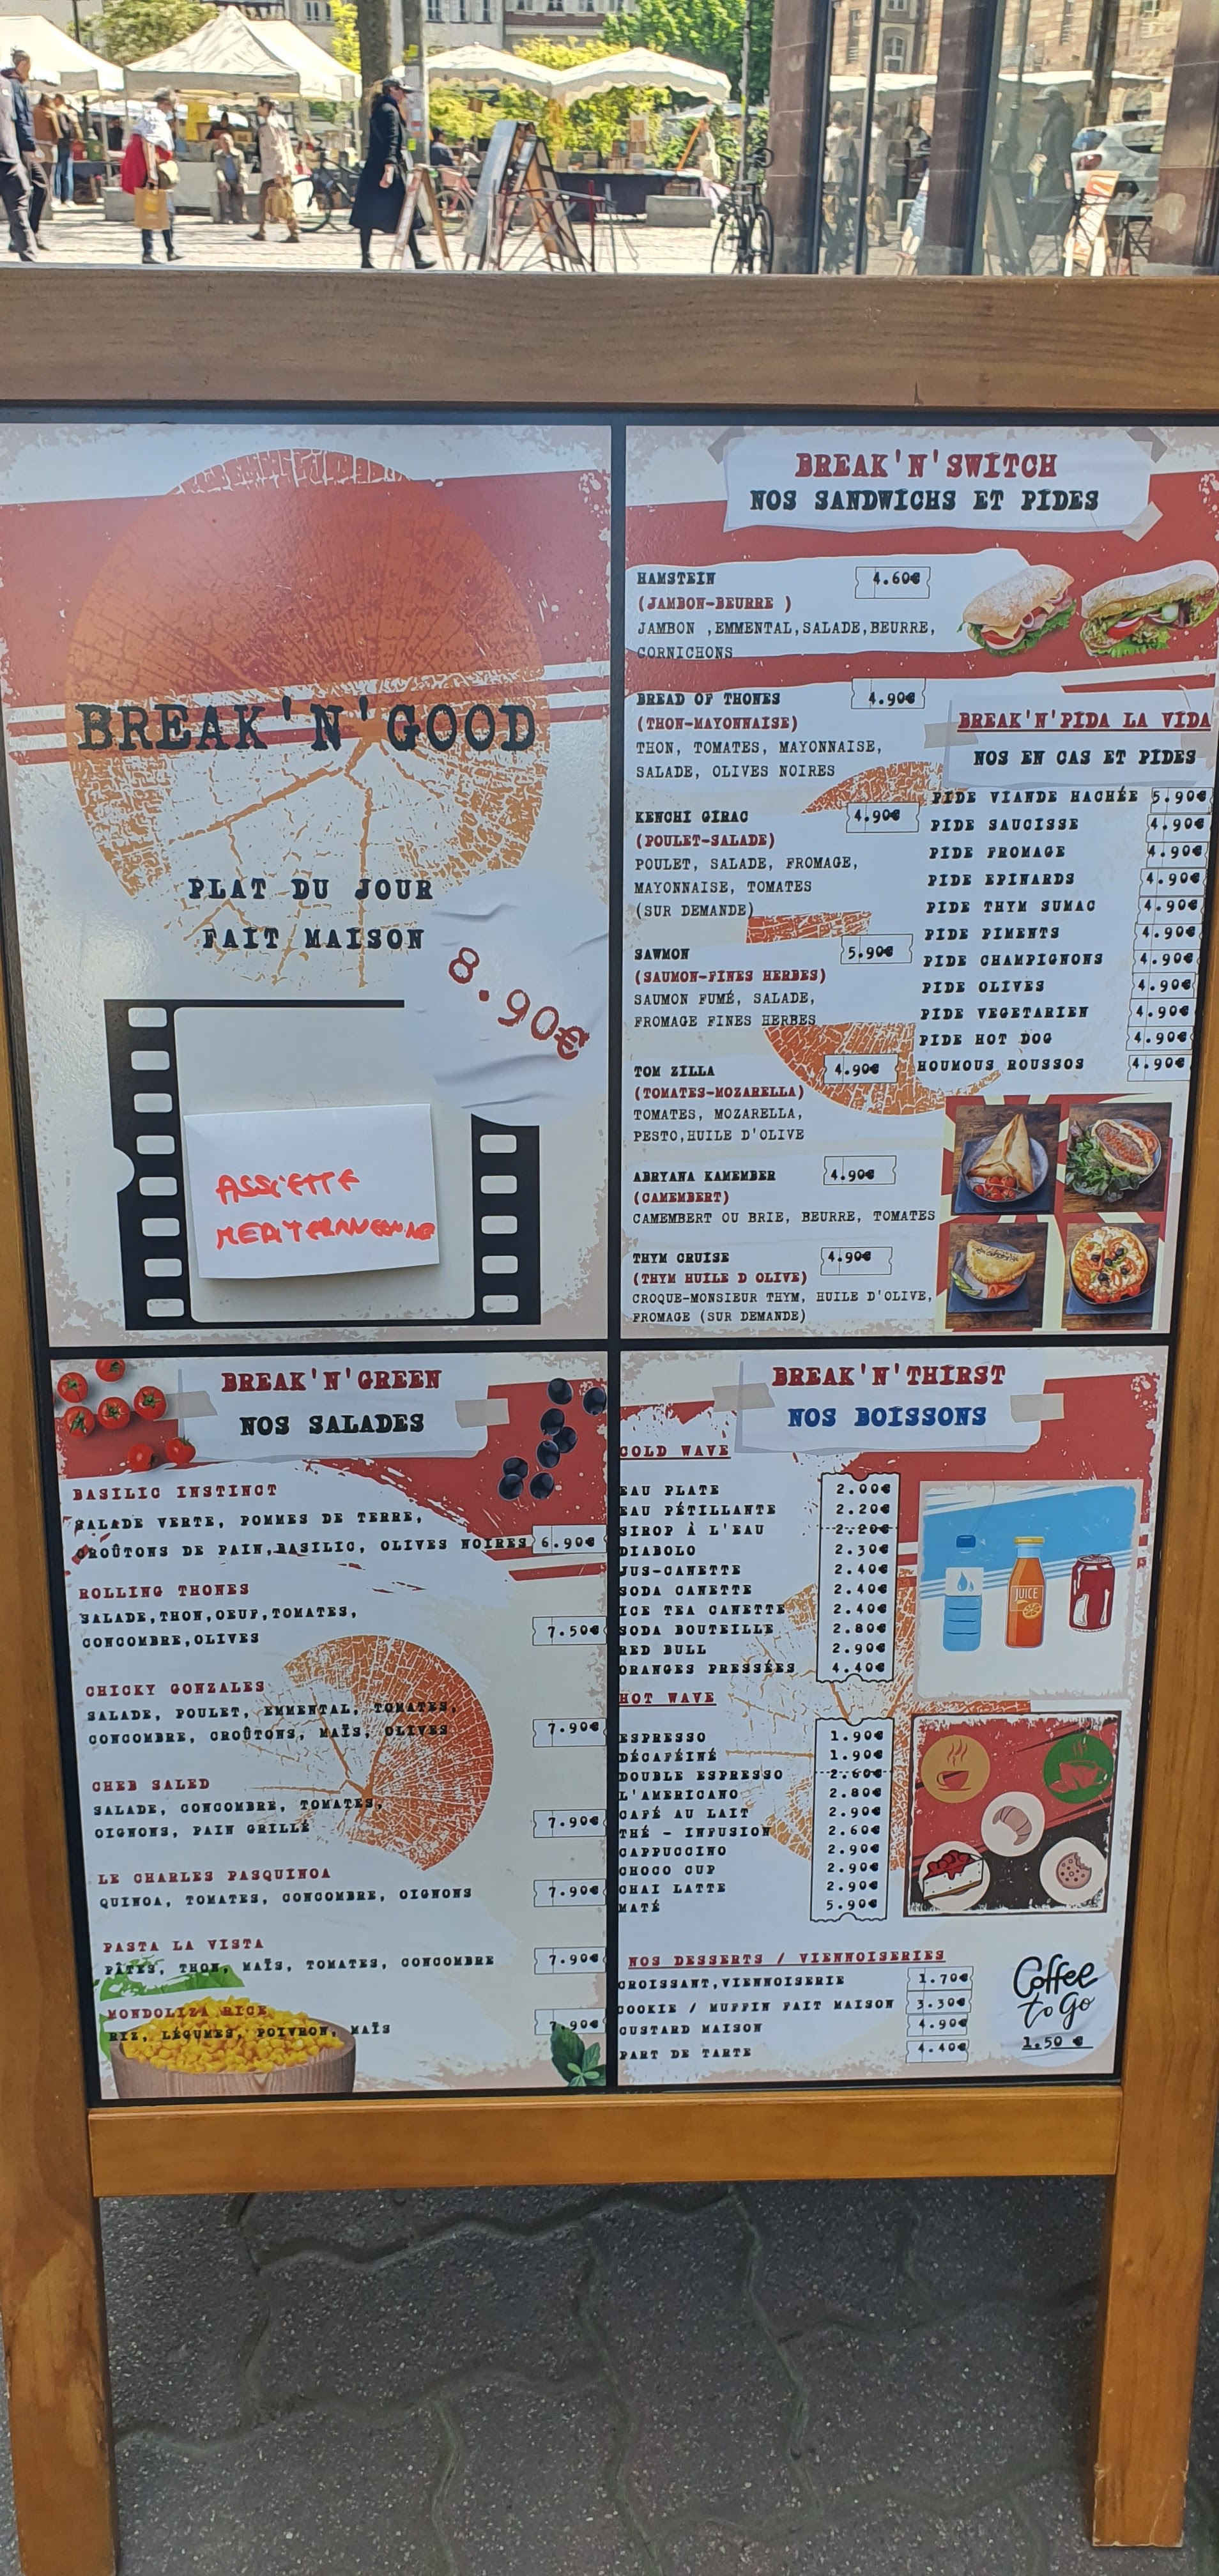 BREAK'N'GOOD
PLAT DU JOUR
FAIT MAISON
8.90€
ASSIETTE
MEDITERRANEENNE
BREAK'N'SWITCH
NOS SANDWICHS ET PIDES
HAMSTEIN 4.60€
(JAMBON-BEURRE )
JAMBON ,EMMENTAL,SALADE,BEURRE,
CORNICHONS
BREAD OF THONES 4.90€
(THON-MAYONNAISE)
THON, TOMATES, MAYONNAISE,
SALADE, OLIVES NOIRES
KENCHI GIRAC 4.90€
(POULET-SALADE)
POULET, SALADE, FROMAGE,
MAYONNAISE, TOMATES
(SUR DEMANDE)
SAWMON 5.90€
(SAUMON-FINES HERBES)
SAUMON FUMÉ, SALADE,
FROMAGE FINES HERBES
TOM ZILLA 4.90€
(TOMATES-MOZARELLA)
TOMATES, MOZARELLA,
PESTO,HUILE D'OLIVE
ABRYANA KAMEMBER 4.90€
(CAMEMBERT)
CAMEMBERT OU BRIE, BEURRE, TOMATES
THYM CRUISE 4.90€
(THYM HUILE D OLIVE)
CROQUE-MONSIEUR THYM, HUILE D'OLIVE,
FROMAGE (SUR DEMANDE)
BREAK'N'PIDA LA VIDA
NOS EN CAS ET PIDES
PIDE VIANDE HACHÉE 5.90€
PIDE SAUCISSE 4.90€
PIDE FROMAGE 4.90€
PIDE EPINARDS 4.90€
PIDE THYM SUMAC 4.90€
PIDE PIMENTS 4.90€
PIDE CHAMPIGNONS 4.90€
PIDE OLIVES 4.90€
PIDE VEGETARIEN 4.90€
PIDE HOT DOG 4.90€
HOUMOUS ROUSSOS 4.90€
BREAK'N'GREEN
NOS SALADES
BASILIC INSTINCT
SALADE VERTE, POMMES DE TERRE,
CROÛTONS DE PAIN,BASILIC, OLIVES NOIRES 6.90€
ROLLING THONES
SALADE,THON,OEUF,TOMATES,
CONCOMBRE,OLIVES 7.50€
CHICKY GONZALES
SALADE, POULET, EMMENTAL, TOMATES,
CONCOMBRE, CROÛTONS, MAÏS, OLIVES 7.90€
CHEB SALED
SALADE, CONCOMBRE, TOMATES,
OIGNONS, PAIN GRILLÉ 7.90€
LE CHARLES PASQUINOA
QUINOA, TOMATES, CONCOMBRE, OIGNONS 7.90€
PASTA LA VISTA
PÂTES, THON, MAÏS, TOMATES, CONCOMBRE 7.90€
MONDOLIZA RICE
RIZ, LÉGUMES, POIVRON, MAÏS 7.90€
BREAK'N'THIRST
NOS BOISSONS
COLD WAVE
EAU PLATE 2.00€
EAU PÉTILLANTE 2.20€
SIROP À L'EAU 2.20€
DIABOLO 2.30€
JUS-CANETTE 2.40€
SODA CANETTE 2.40€
ICE TEA CANETTE 2.40€
SODA BOUTEILLE 2.80€
RED BULL 2.90€
ORANGES PRESSÉES 4.40€
JUICE
HOT WAVE
ESPRESSO 1.90€
DÉCAFÉINÉ 1.90€
DOUBLE ESPRESSO 2.60€
L'AMERICANO 2.80€
CAFÉ AU LAIT 2.90€
THÉ - INFUSION 2.60€
CAPPUCCINO 2.90€
CHOCO CUP 2.90€
CHAI LATTE 2.90€
MATÉ 5.90€
NOS DESSERTS / VIENNOISERIES
CROISSANT,VIENNOISERIE 1.70€
COOKIE / MUFFIN FAIT MAISON 3.30€
CUSTARD MAISON 4.90€
PART DE TARTE 4.40€
Coffee
to Go
1.50 €